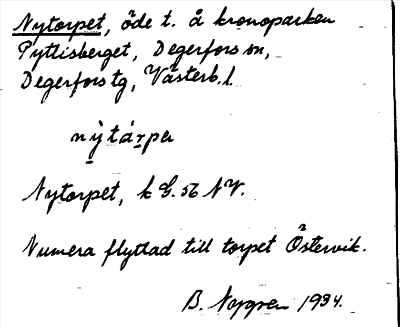 Nytorpet, öde t. å kronoparken
Pyttisberget, Degerfors sn,
Degerfors tg, Västerb. l.
nỳtár̤per
Nytorpet, k G. 56 NV.
Numera flyttad till torpet Östervik.
B. 1934.